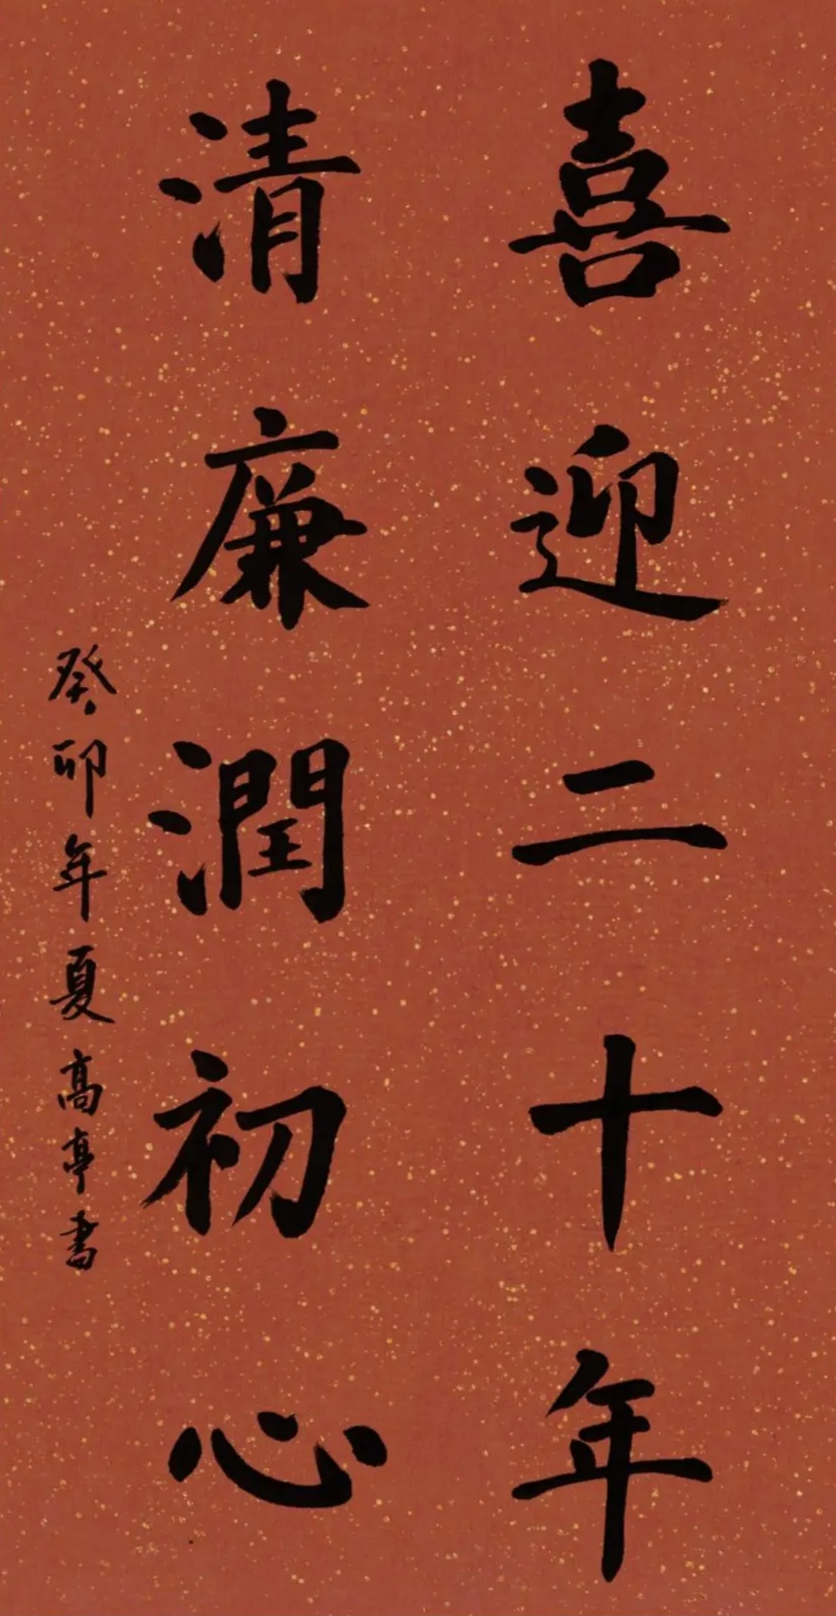 喜迎二十年
清廉潤初心
癸卯年夏高亭書